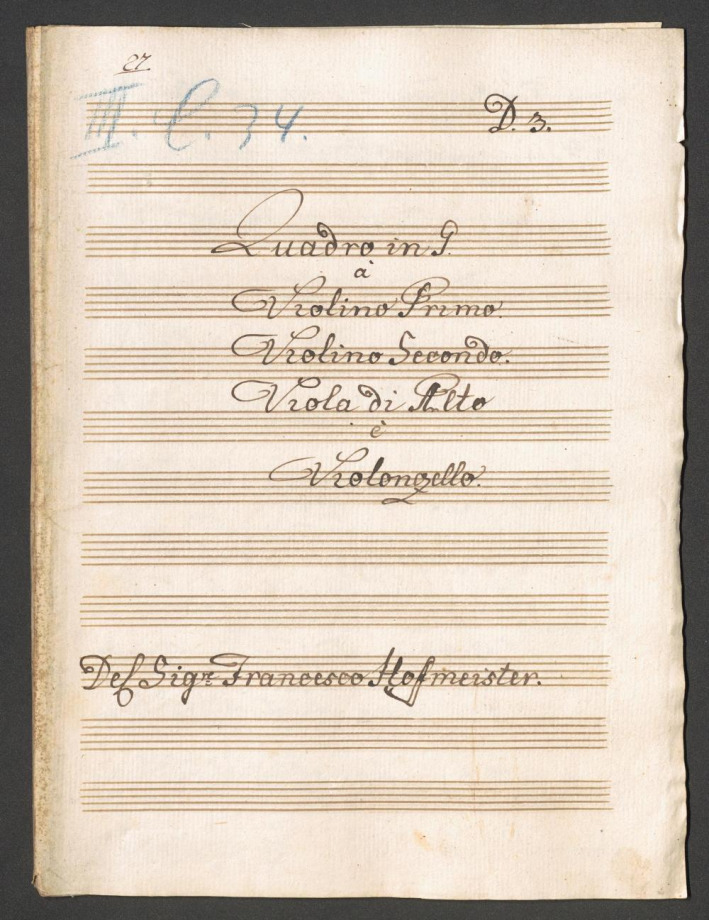 27.
III. C. 34.
D. 3.
Quadro in G.
à
Violino Primo.
Violino Secondo.
Viola di Alto
è
Violonzello.
Del Sigr. Francesco Hofmeister.